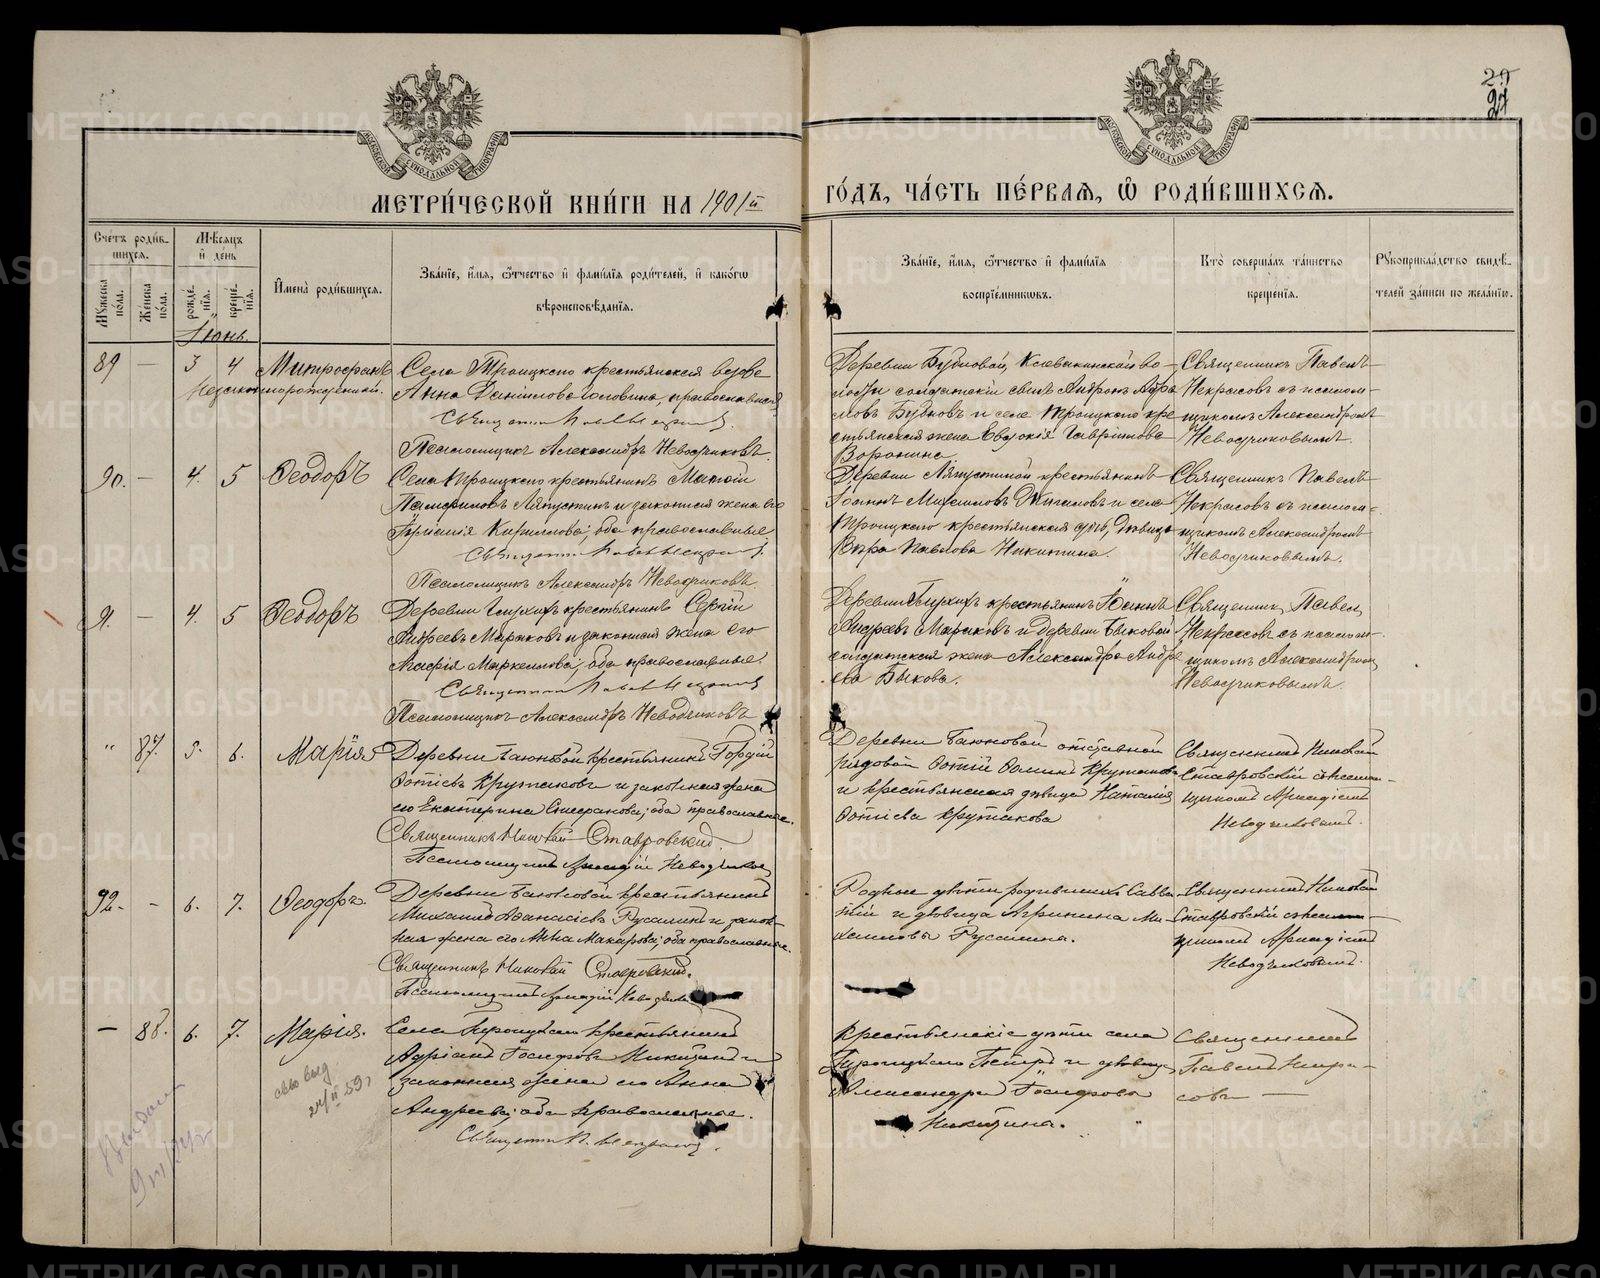 29
27
МОСКОВСКОЙ СѴНОДАЛЬНОЙ ТИПОГРАФІИ
МОСКОВСКОЙ СѴНОДАЛЬНОЙ ТИПОГРАФІИ
МЕТРИ́ЧЕСКОЙ КНИ́ГИ НА 1901й ГО́ДЪ, ЧА́СТЬ ПЕ́РВАЯ, Ѡ РОДИ́ВШИХСЯ.
Сче́тъ роди́в-
шихся.
Мѣ́сяцъ
и҆ де́нь
Му́жеска по́ла.
Же́нска по́ла.
рожде́нїя.
креще́нїя.
И҆мена̀ роди́вшихся.
Зва́нїе, и҆́мя, ѻ҆́тчество и҆ фами́лїя роди́телей, и҆ како́гѡ
вѣроисповѣ́данїя.
Зва́нїе, и҆́мя, ѻ҆́тчество и҆ фами́лїя
воспрїе́мниковъ.
Кто̀ соверша́лъ та́инство
креще́нїя.
Рꙋкоприкла́дство свидѣ́-
телей за́писи по жела́нїю.
Іюнь.
89 — 3 4 Митрофанъ
Незаконнорожденный.
Села Троицкаго крестьянская вдова
Анна Даніилова Головина, православная
Священникъ Павелъ Некрасовъ.
Псаломщикъ Александръ Неводчиковъ.
Деревни Бубновой, Клевакинской во-
лости солдатскій сынъ Андронъ
Бубновъ и села Троицкаго кре
стьянская жена Евдокія Гаврилова
Воронина.
Священникъ Павелъ
Некрасовъ съ псалом-
щикомъ Александромъ
Неводчиковымъ.
90. — 4. 5 Ѳеодоръ
Села Троицкаго крестьянинъ
Памфиловъ Ляпустинъ и законная жена его
Кирилова; оба православные
Священникъ Павелъ Некрасовъ.
Псаломщикъ Александръ Неводчиковъ
Деревни Ляпустиной крестьянинъ
Іоаннъ и села
Троицкаго крестьянская дочь, дѣвица
Вѣра Павлова Никитина.
Священникъ Павелъ
Некрасовъ съ псалом-
щикомъ Александромъ
Неводчиковымъ.
91. — 4. 5 Ѳеодоръ
Деревни Глухихъ крестьянинъ Сергій
Андреевъ Маряковъ и законная жена его
Агафія Маркеллова; оба православные.
Священникъ Павелъ Некрасовъ
Псаломщикъ Александръ Неводчиковъ
Деревни Глухихъ крестьянинъ Іоаннъ
Андреевъ Маряковъ и деревни Быковой
солдатская жена Александра Андре
ева Быкова.
Священникъ Павелъ
Некрасовъ съ псалом-
щикомъ Александромъ
Неводчиковымъ.
" 87. 5. 6. Марія
Деревни крестьянинъ Гордій
Фотіевъ Крутаковъ и законная жена
его Екатерина Стефанова; оба православные.
Священникъ Николай Ставровскій.
Псаломщикъ Аркадій Неводчиковъ
Деревни отставной
рядовой Фотій Фоминъ Крутаковъ
и крестьянская дѣвица Наталія
Фотіева Крутакова
Священникъ Николай
Ставровскій съ псалом-
щикомъ Аркадіемъ
Неводчиковымъ.
92. — 6. 7. Ѳеодоръ.
Деревни крестьянинъ
Михаилъ Аѳанасіевъ Русалинъ и закон-
ная жена его Анна Макарова; оба православные.
Священникъ Николай Ставровскій.
Псаломщикъ Аркадій Неводчиковъ
Родные дѣти родившихъ Савва-
тій и дѣвица Агрипина Ми-
хаиловы Русалины.
Священникъ Николай
Ставровскій съ псалом-
щикомъ Аркадіемъ
Неводчиковымъ.
— 88. 6. 7. Марія.
Села Троицкаго крестьянинъ
Адріанъ Іосифовъ Никитинъ и
законная жена его Анна
Андреева; оба православные.
Священникъ П. Некрасовъ.
Крестьянскіе дѣти села
Троицкаго Петръ и дѣвица
Александра Іосифовы
Никитины.
Священникъ
Павелъ Некра-
совъ —